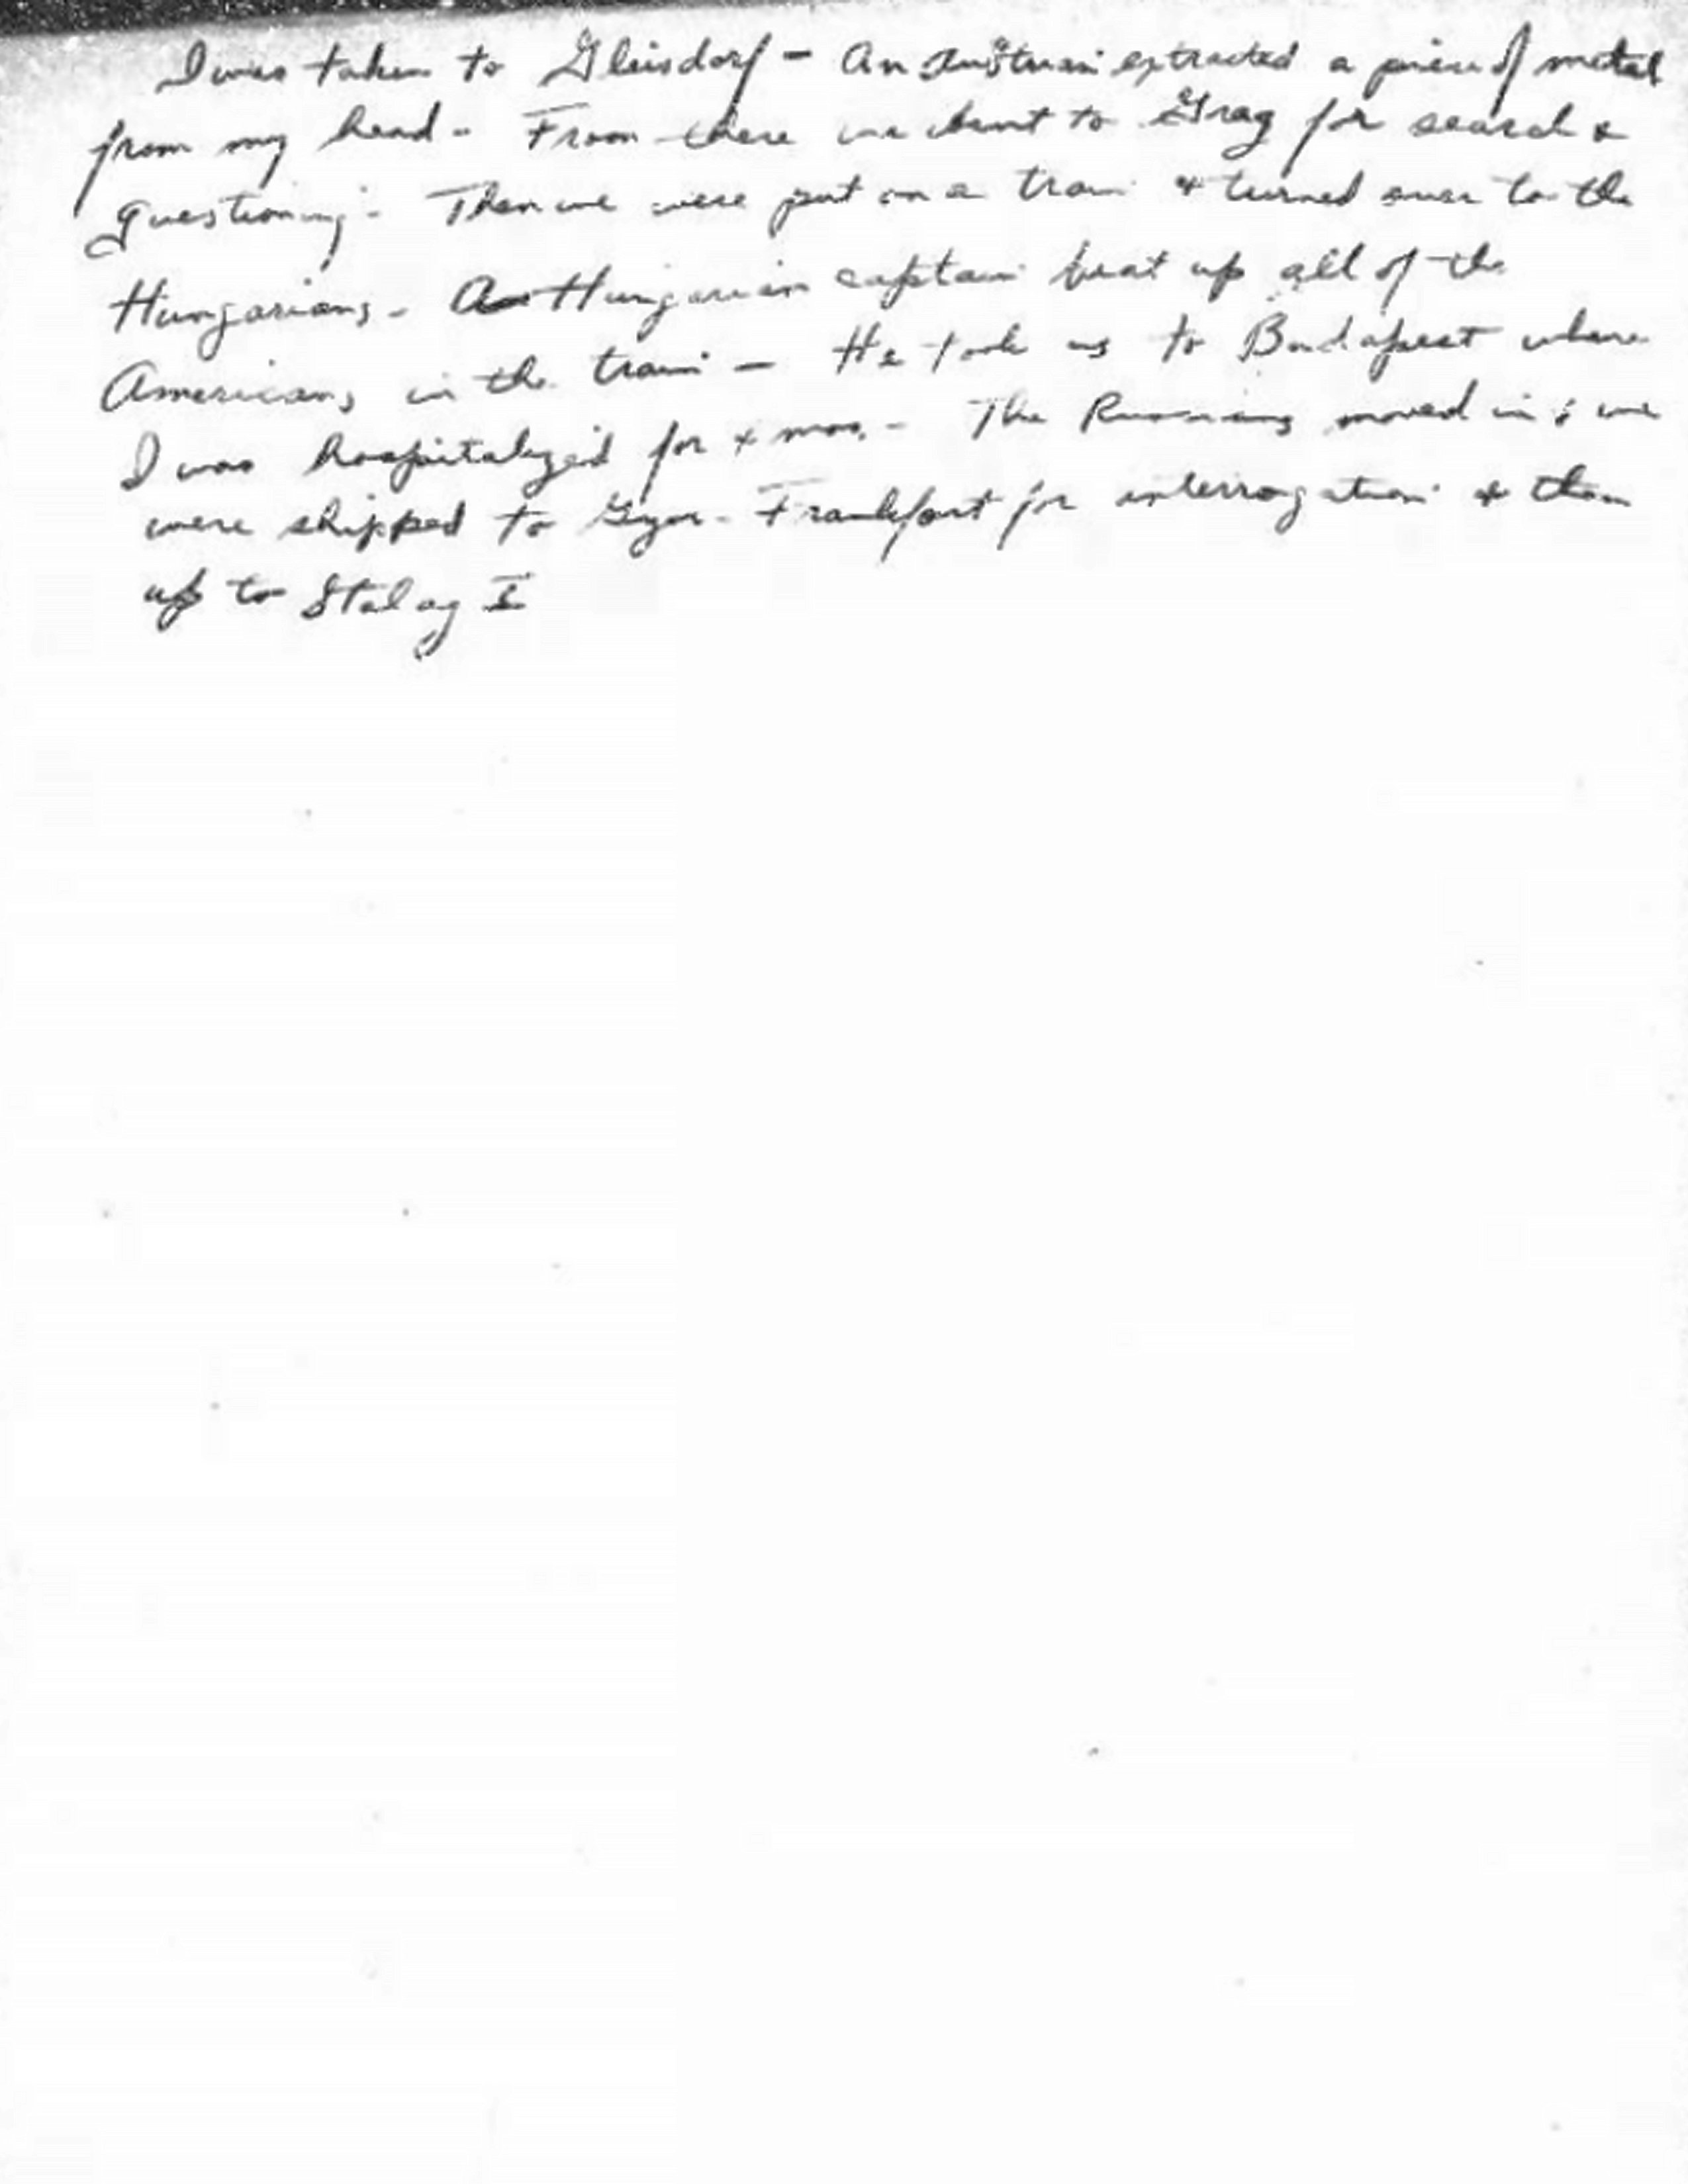 I was taken to Gleisdorf - An Austrian extracted a piece of metal
from my head - From there we went to Graz for search &
questioning - Then we were put on a train & turned over to the
Hungarians - A Hungarian captain beat up all of the
Americans in the train - He took us to Budapest where
I was hospitalized for mos. - The Russians moved in & we
were shipped to Gyor - Frankfort for interrogation & then
up to Stalag I